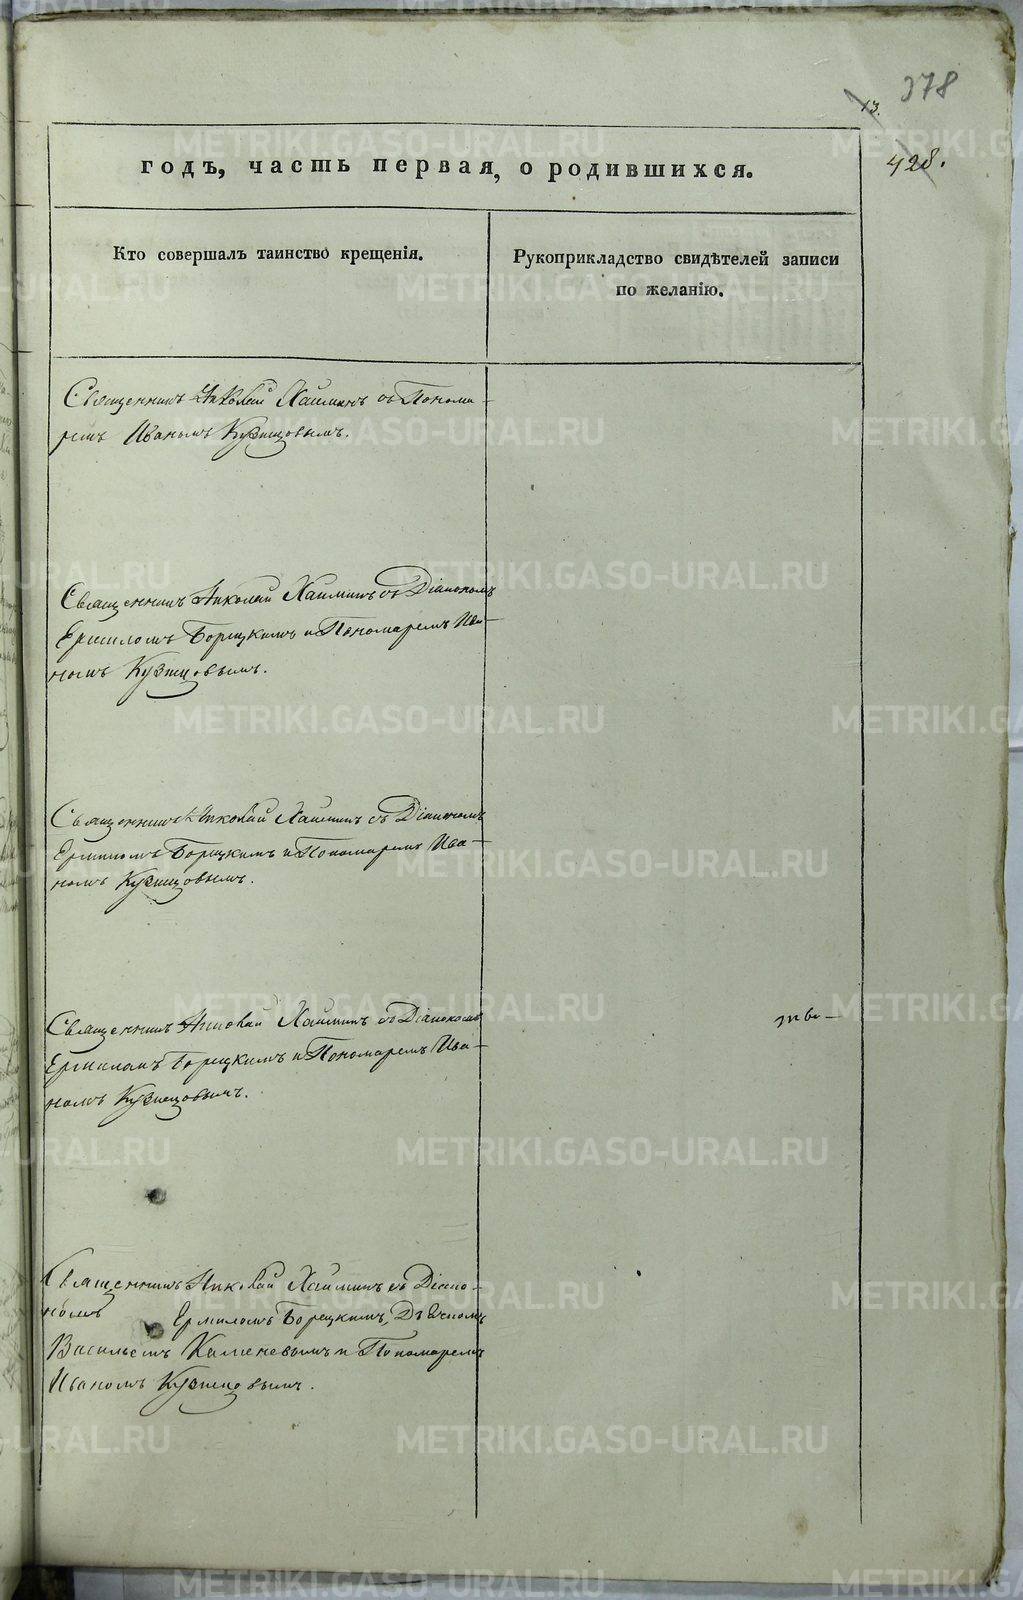 378
13.
428.
годъ, часть первая, о родившихся.
Кто совершалъ таинство крещенія.
Рукоприкладство свидѣтелей записи
по желанію.
Священникъ Николай Хаминъ съ Понома-
ремъ Иваномъ Кузнецовымъ.
Священникъ Николай Хаминъ съ Діакономъ
Ермиломъ Борецкимъ и Пономаремъ Ива-
номъ Кузнецовымъ.
Священникъ Николай Хаминъ съ Діакономъ
Ермиломъ Борецкимъ и Пономаремъ Ива-
номъ Кузнецовымъ.
Священникъ Николай Хаминъ съ Діакономъ
Ермиломъ Борецкимъ и Пономаремъ Ива-
номъ Кузнецовымъ.
Священникъ Николай Хаминъ съ Діако-
номъ Ермиломъ Борецкимъ, Дьячкомъ
Васильемъ Каменевымъ и Пономаремъ
Иваномъ Кузнецовымъ.
METRIKI.GASO-URAL.RU